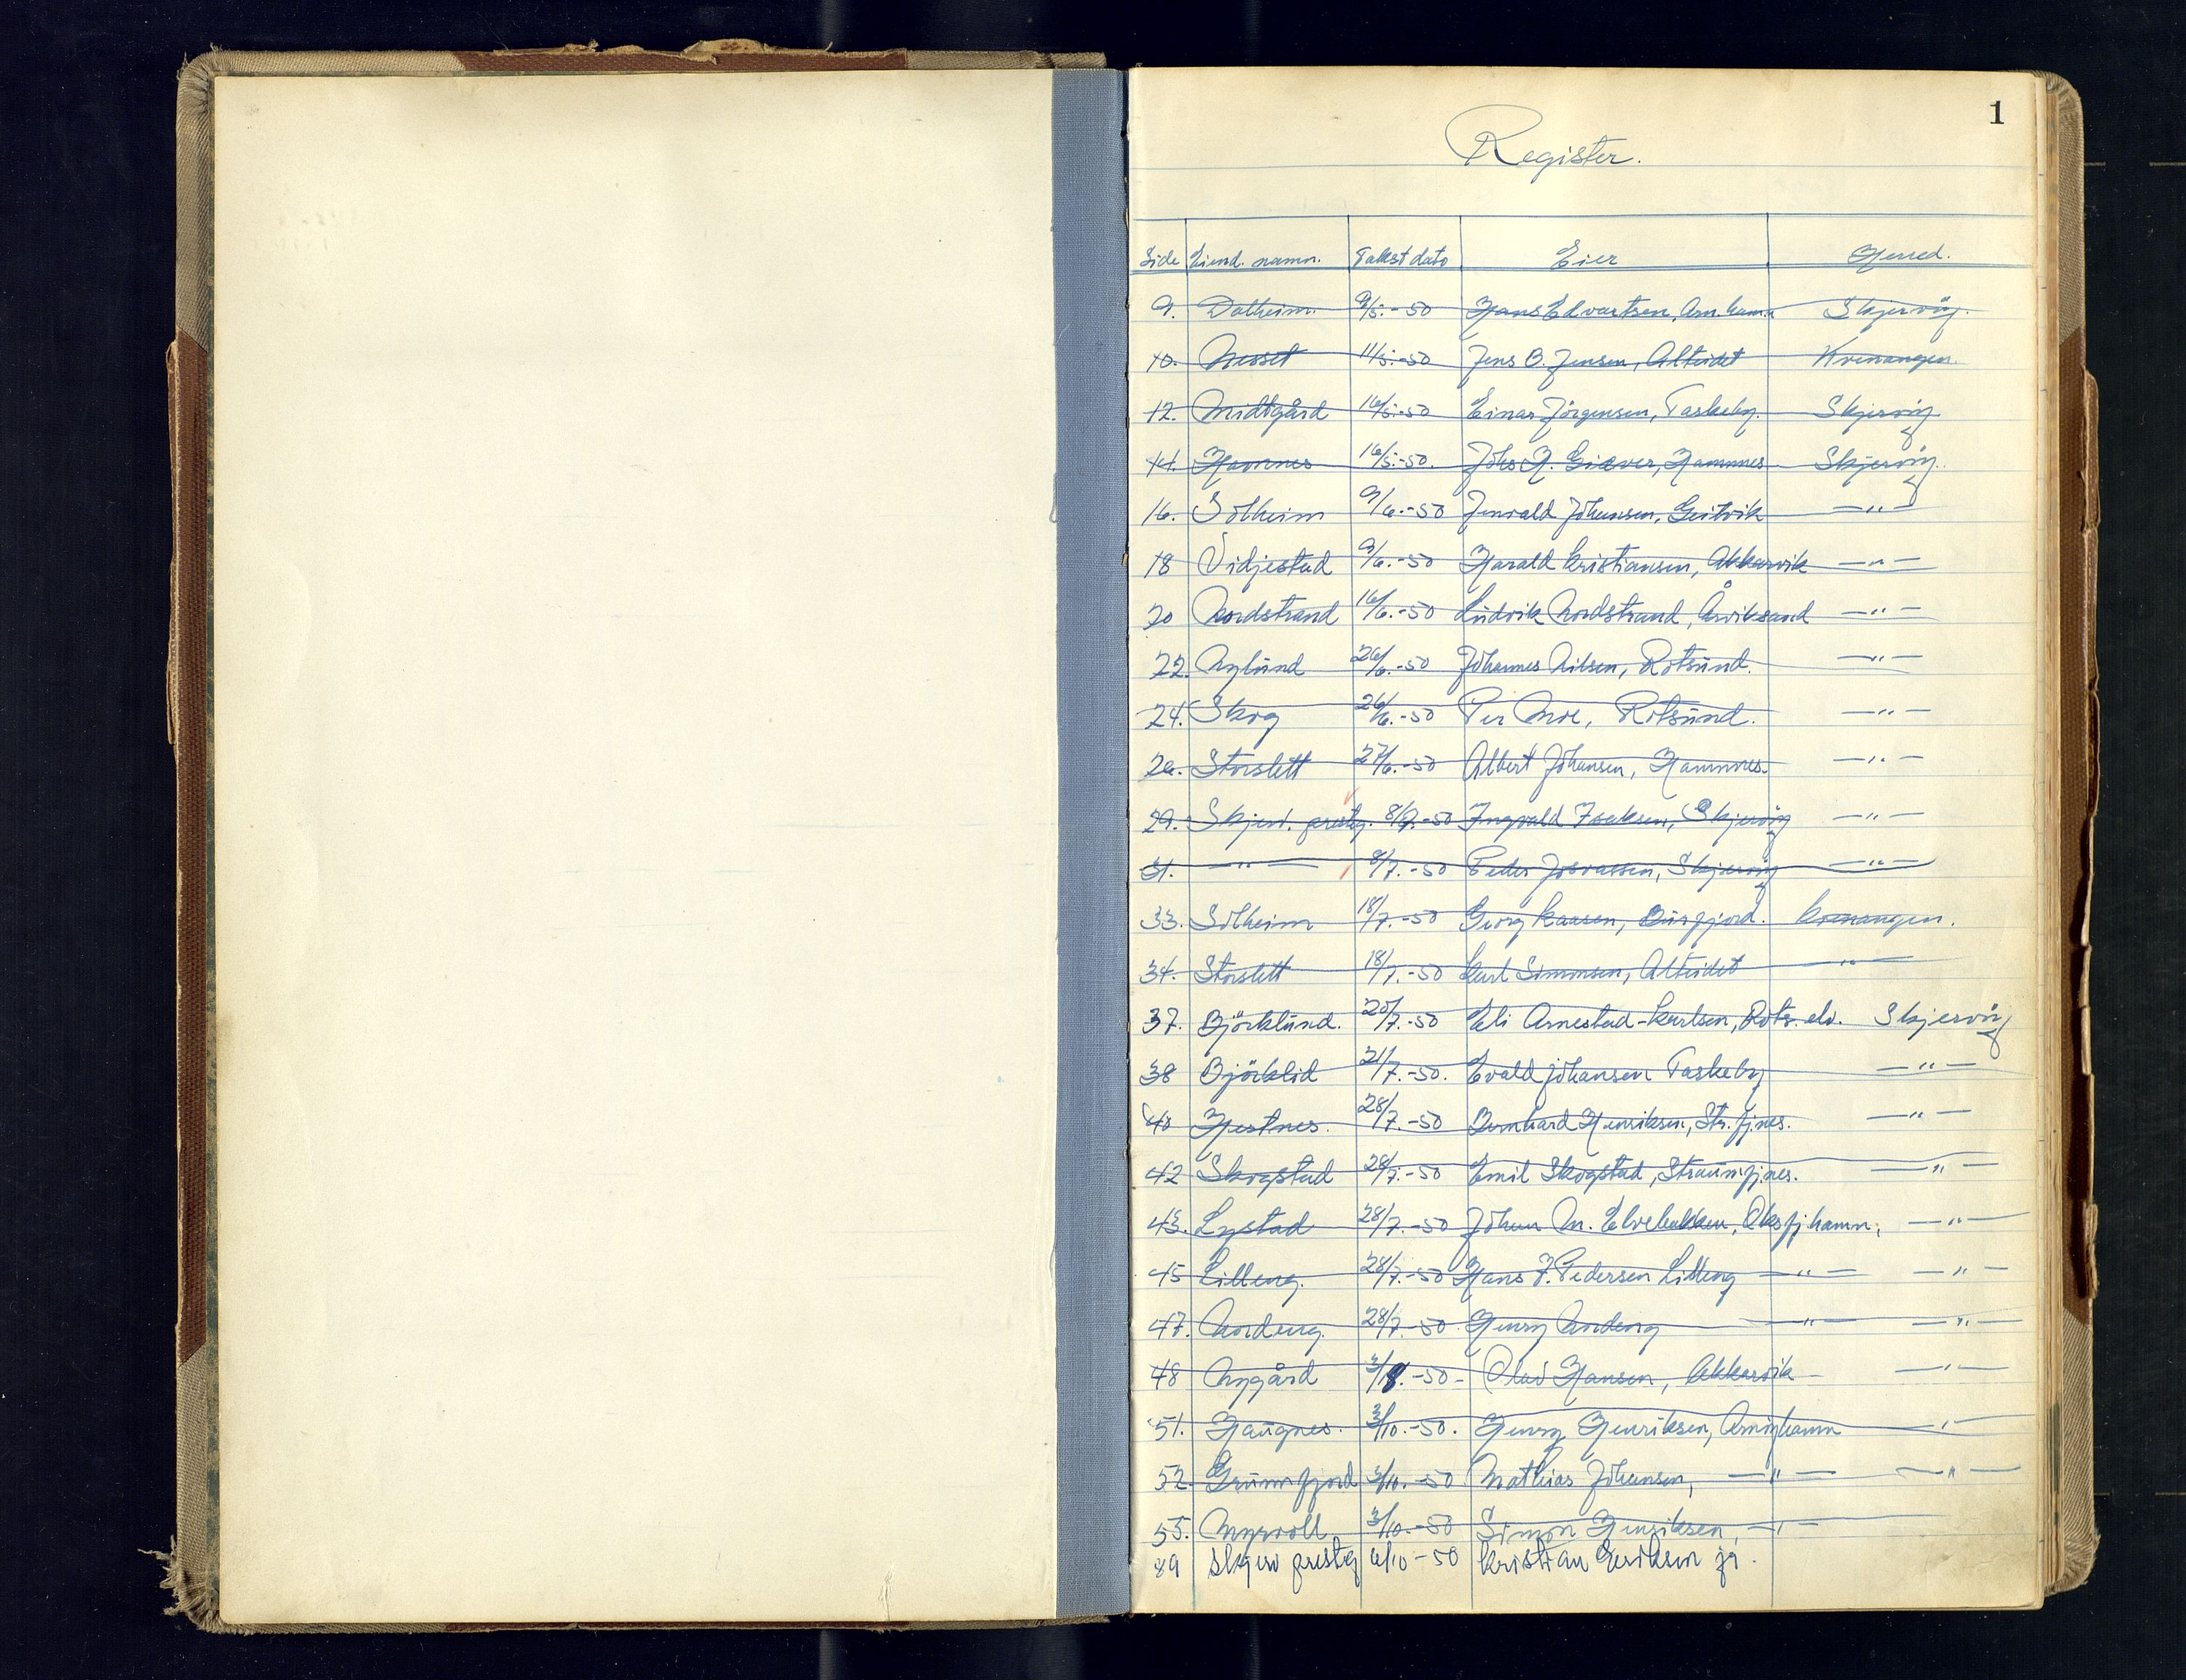 1
Register.
Side Eiend. namn. Takst dato Eier Herred.
9. Dalheim. 9/5.-50 Hans Edvartsen, Arn.hamn Skjervöy.
10. Nesset 11/5.-50 Jens B. Jensen, Alteidet Kvenangen.
12. Midtgård 16/5.-50 Einar Jörgensen, Taskeby. Skjervöy
14. Havnnes 16/5.-50. Johs H. Giæver, Hamnnes Skjervöy.
16. Solheim 9/6.-50 Jenvald Johansen, Geitvik —"—
18 Vidjestad 9/6.-50 Harald Kristiansen, Akkarvik —"—
20 Nordstrand 16/6.-50 Ludvik Nordstrand, Årviksand —"—
22. Nylund 26/6.-50 Johannes Nilsen, Rotsund. —"—
24. Skog 26/6.-50 Per Moe, Rotsund. —"—
26. Storslett 27/6.-50 Albert Johansen, Hamnnes. —"—
29. Skjerv. presteg. 8/7.-50 Ingvald Isaksen, Skjervöy —"—
31. —"— 8/7.-50 Peder Josvassen, Skjervöy —"—
33. Solheim 18/7.-50 Georg Kaasen, Burfjord. Kvenangen.
34. Storslett 18/7.-50 Karl Simonsen, Alteidet —"—
37. Björklund. 20/7.-50 Eli Arnestad-Karlsen, Rots.elv. Skjervöy
38 Björklid 21/7.-50. Evald Johansen Taskeby —"—
40 Hestnes. 28/7.-50 Bernhard Henriksen, Str.fj.nes. —"—
42 Skogstad 28/7.-50 Emil Skogstad, Straumfj.nes. —"—
43. Lystad 28/7.-50 Johan M. Elvebakken, Oksfj.hamn, —"—
45 Lilleng. 28/7.-50 Hans J. Pedersen Lilleng —"— —"—
47. Nordeng. 28/7.-50 Henry Nordeng —"— —"—
48 Nygård 3/8.-50- Olav Hansen, Akkarvik —"—
51. Haugnes. 3/10.-50. Henry Henriksen, Arnöyhamn —"—
52. Grunnfjord 3/10.-50 Mathias Johansen, —"— —"—
55. Myrvoll 3/10.-50 Simon Henriksen, —"—
89 Skjerv presteg 6/10-50 Kristian Henriksen jr.